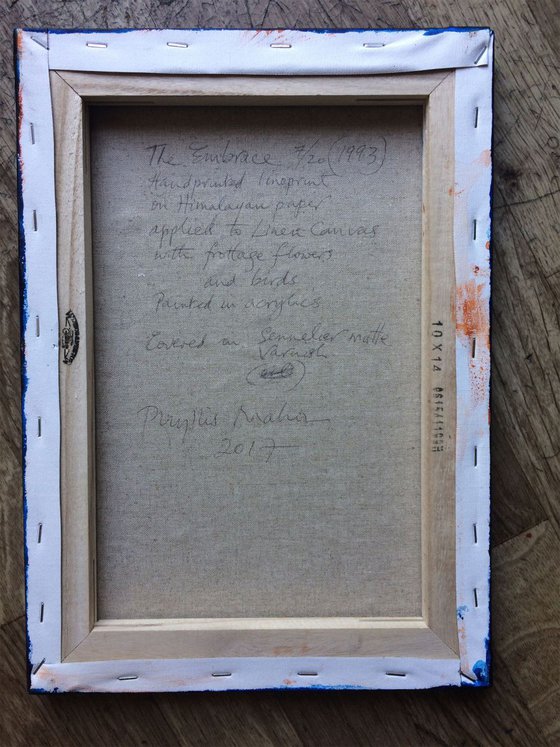 The Embrace 7/20 (1993)
Handprinted linoprint
on Himalayan paper
applied to Linen Canvas
with frottage flowers
and birds
Painted in acrylics
Covered in Sennelier matte
varnish
Phyllis Mahon
2017
10 X 14